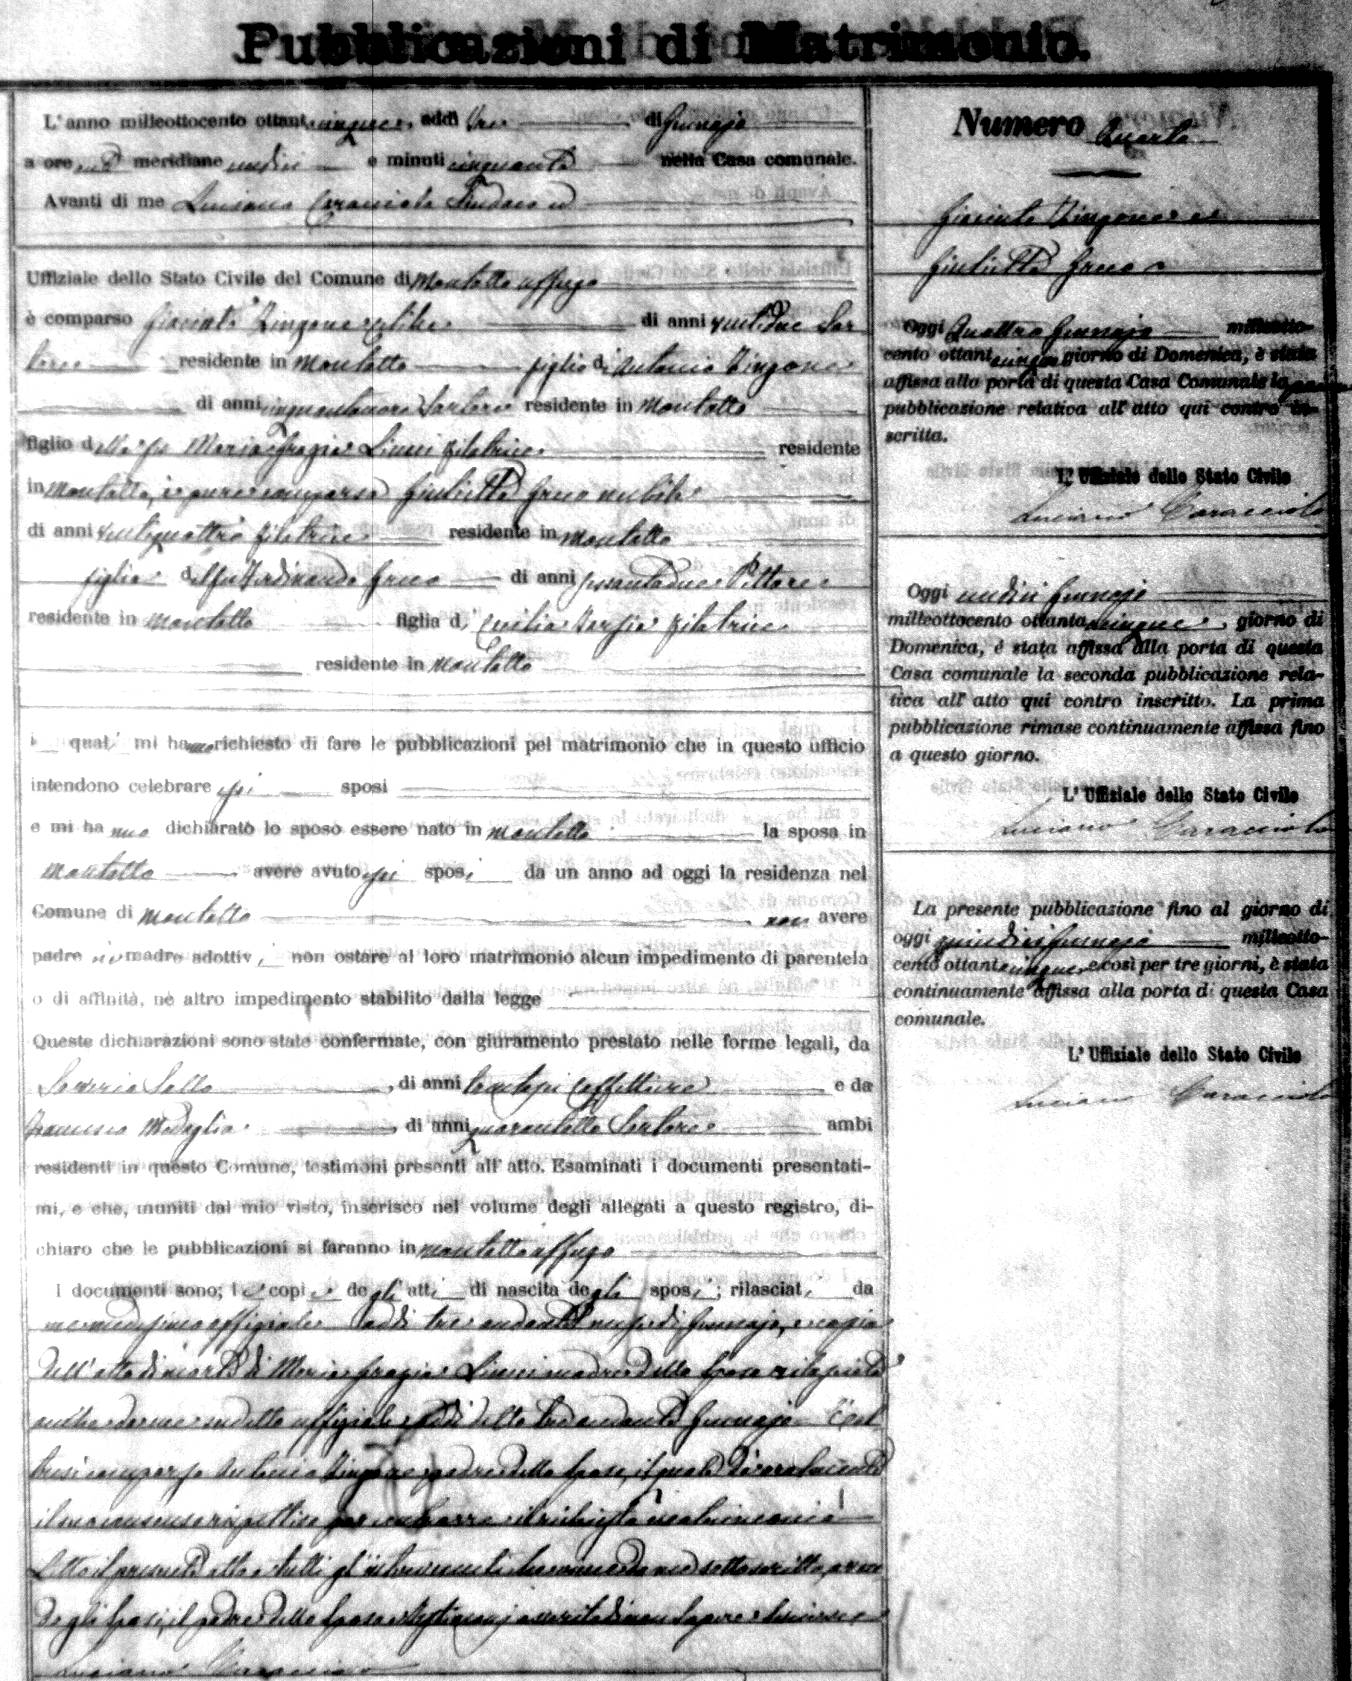 Pubblicazioni di Matrimonio.
L'anno milleottocento ottantacinque, addì tre di Gennajo
a ore anti meridiane undici e minuti cinquanta nella Casa comunale.
Avanti di me Luciano Caracciolo Sindaco ed
Uffiziale dello Stato Civile del Comune di Montalto Uffugo
è comparso Giacinto Zingone celibe di anni ventidue Sar
tore residente in Montalto figlio di Antonio Zingone
di anni cinquantanove Sartore residente in Montalto
figlio della fu Maria Grazia filatrice residente
in Montalto, è pure comparsa Giulietta Greco nubile
di anni ventiquattro filatrice residente in Montalto
figlia del fu Ferdinando Greco di anni sessantadue Pittore
residente in Montalto figlia di Cecilia filatrice
residente in Montalto
i quali mi hanno richiesto di fare le pubblicazioni pel matrimonio che in questo ufficio
intendono celebrare essi sposi
e mi hanno dichiarato lo sposo essere nato in Montalto la sposa in
Montalto avere avuto essi sposi da un anno ad oggi la residenza nel
Comune di Montalto non avere
padre nè madre adottivi, non ostare al loro matrimonio alcun impedimento di parentela
o di affinità, nè altro impedimento stabilito dalla legge
Queste dichiarazioni sono state confermate, con giuramento prestato nelle forme legali, da
Saverio di anni trentasei Caffettiere e da
Francesco Medaglia, di anni quarantotto Sartore ambi
residenti in questo Comune, testimoni presenti all'atto. Esaminati i documenti presentati-
mi, e che, muniti dal mio visto, inserisco nel volume degli allegati a questo registro, di-
chiaro che le pubblicazioni si faranno in Montalto Uffugo
I documenti sono; le copie degli atti di nascita degli sposi; rilasciati da
me medesimo uffiziale addì tre andante mese di Gennajo, e copia
dell'atto di morte di Maria Grazia madre dello sposo rilasciata
anche da me suddetto uffiziale addì detto tre andante Gennajo. È al
tresì comparso Antonio Zingone padre dello sposo, il quale dà oralmente
il suo consenso rispettivo per contrarre il richiesto matrimonio
Letto il presente atto a tutti gl'intervenuti da me sottoscritto, aven
do gli sposi, il padre dello sposo e testimonj asserito di non sapere scrivere
Luciano Caracciolo
Numero Quarto
Giacinto Zingone e
Giulietta Greco
Oggi Quattro Gennajo milleotto-
cento ottantacinque giorno di Domenica, è stata
affissa alla porta di questa Casa Comunale la prima
pubblicazione relativa all'atto qui contro in-
scritta.
L'Uffiziale dello Stato Civile
Luciano Caracciolo
Oggi undici Gennajo
milleottocento ottantacinque, giorno di
Domenica, è stata affissa alla porta di questa
Casa comunale la seconda pubblicazione rela-
tiva all'atto qui contro inscritto. La prima
pubblicazione rimase continuamente affissa fino
a questo giorno.
L'Uffiziale dello Stato Civile
Luciano Caracciolo
La presente pubblicazione fino al giorno di
oggi quindici Gennajo milleotto-
cento ottantacinque e così per tre giorni, è stata
continuamente affissa alla porta di questa Casa
comunale.
L'Uffiziale dello Stato Civile
Luciano Caracciolo